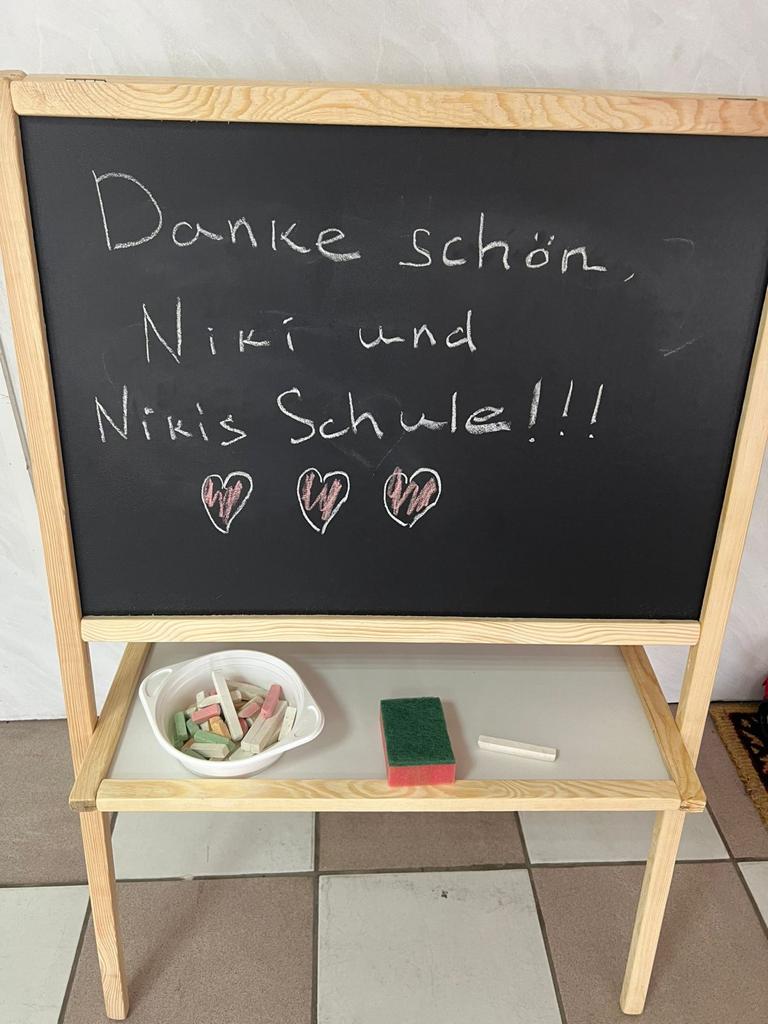 Danke schön,
Niki und
Nikis Schule!!!